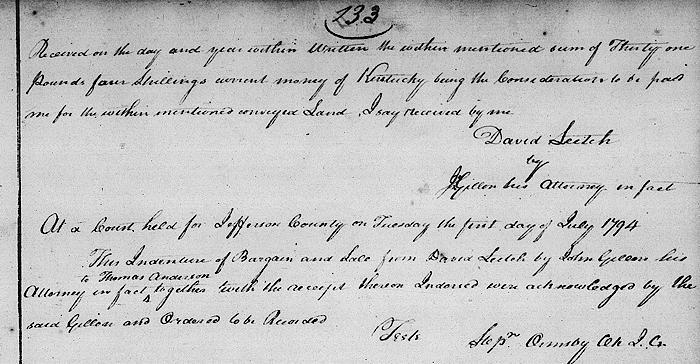 233
Received on the day and year within written the within mentioned sum of Thirty one
Pounds four Shillings current money of Kentucky being the Consideration to be paid
me for the within mentioned conveyed Land I say received by me
David Leitch
by
Jn Gillon his Attorney in fact
At a Court held for Jefferson County on Tuesday the first day of July 1794
This Indenture of Bargain and Sale from David Leitch by John Gillon his
to Thomas Anderson
Attorney in fact ‸ together with the receipt thereon Indorsed were acknowledged by the
said Gillon and Ordered to be Recorded
Teste Stepn Ormsby Ck J. Cr